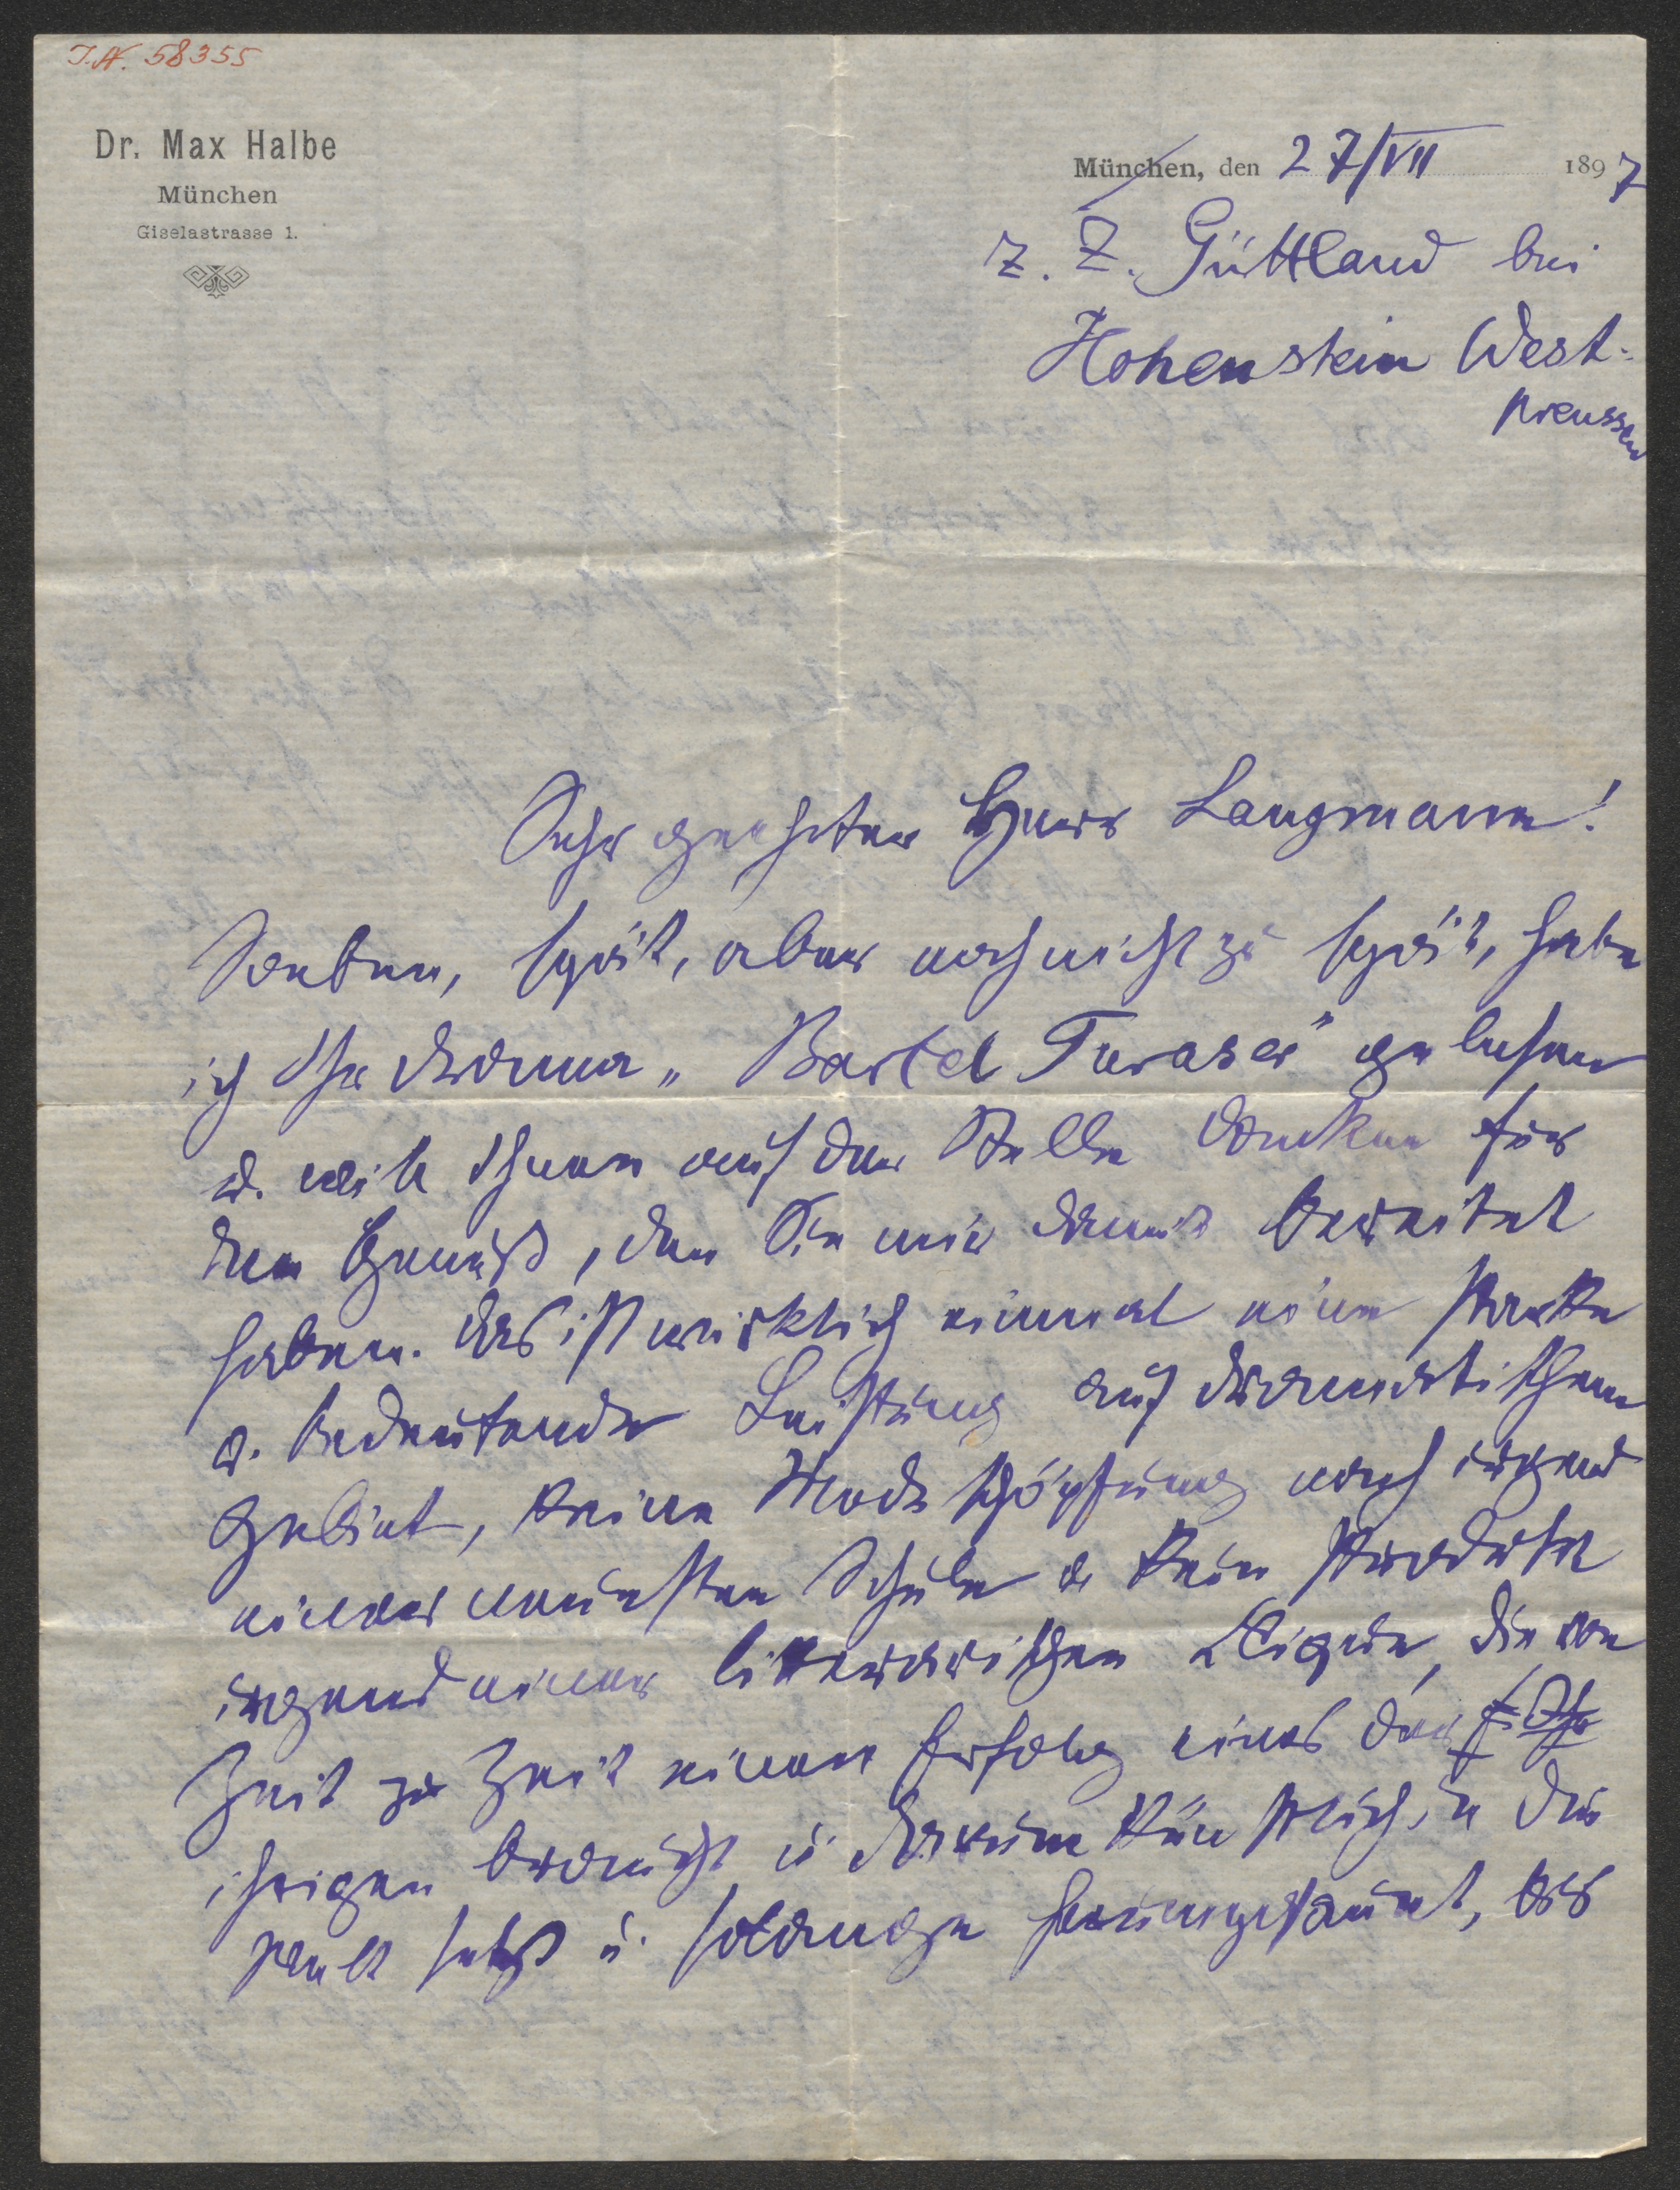 I.N. 58355
Dr. Max Halbe
München
Giselastrasse 1.
München, den 27/VII 1897
z. Z. Güttland bei
Hohenstein West-
preussen
Sehr geehrter Herr Langmann!
Soeben, spät, aber noch nicht zu spät, habe
ich Ihr Drama „Bartel Turaser" gelesen
u. will Ihnen auf der Stelle danken für
den Genuß, den Sie mir damit bereitet
haben. Das ist wirklich einmal eine starke
u. bedeutende Leistung auf dramatischem
Gebiet, keine Modeschöpfung nach irgend
einer neuesten Schule u. kein Produkt
irgend einer litterarischen Clique, die von
Zeit zu Zeit einen Erfolg eines der
ihrigen braucht u. darum künstlich in die
Welt setzt u. solange herumposaunt, bis